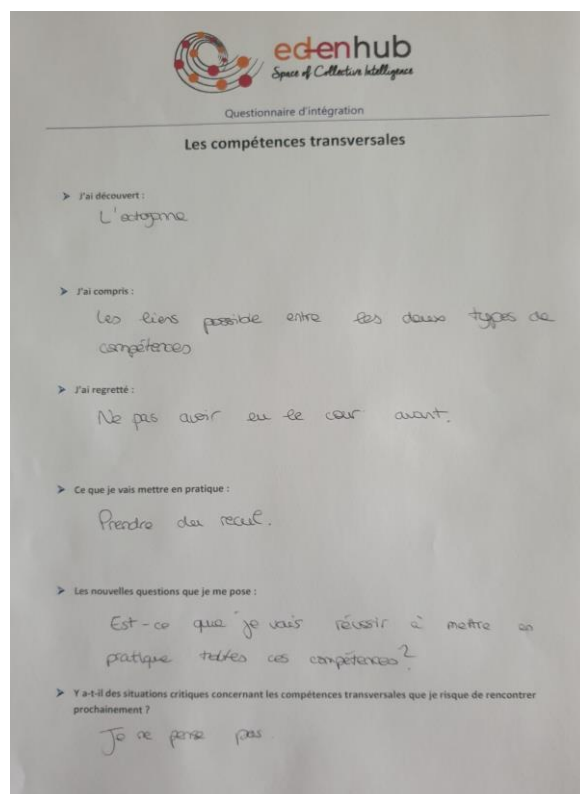 edenhub
Space of Collective Intelligence
Questionnaire d'intégration
Les compétences transversales
➤ J'ai découvert :
L'octogone
➤ J'ai compris :
Les liens possible entre les deux types de
compétences
➤ J'ai regretté :
Ne pas avoir eu le cour avant.
➤ Ce que je vais mettre en pratique :
Prendre du recul.
➤ Les nouvelles questions que je me pose :
Est-ce que je vais réussir à mettre en
pratique toutes ces compétences ?
➤ Y a-t-il des situations critiques concernant les compétences transversales que je risque de rencontrer
prochainement ?
Je ne pense pas.